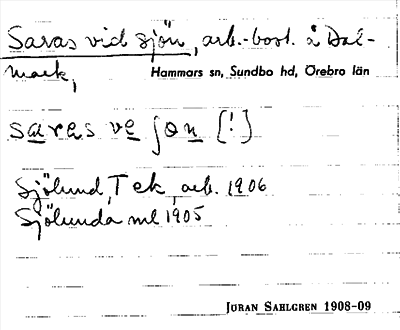 Saras vid sjön, arb.-bost. å Dal-
mark,
Hammars sn, Sundbo hd, Örebro län
saras ve ʃɵn [!]
Sjölund, T ek, arb. 1906
Sjölunda ml 1905
JÖRAN SAHLGREN 1908-09